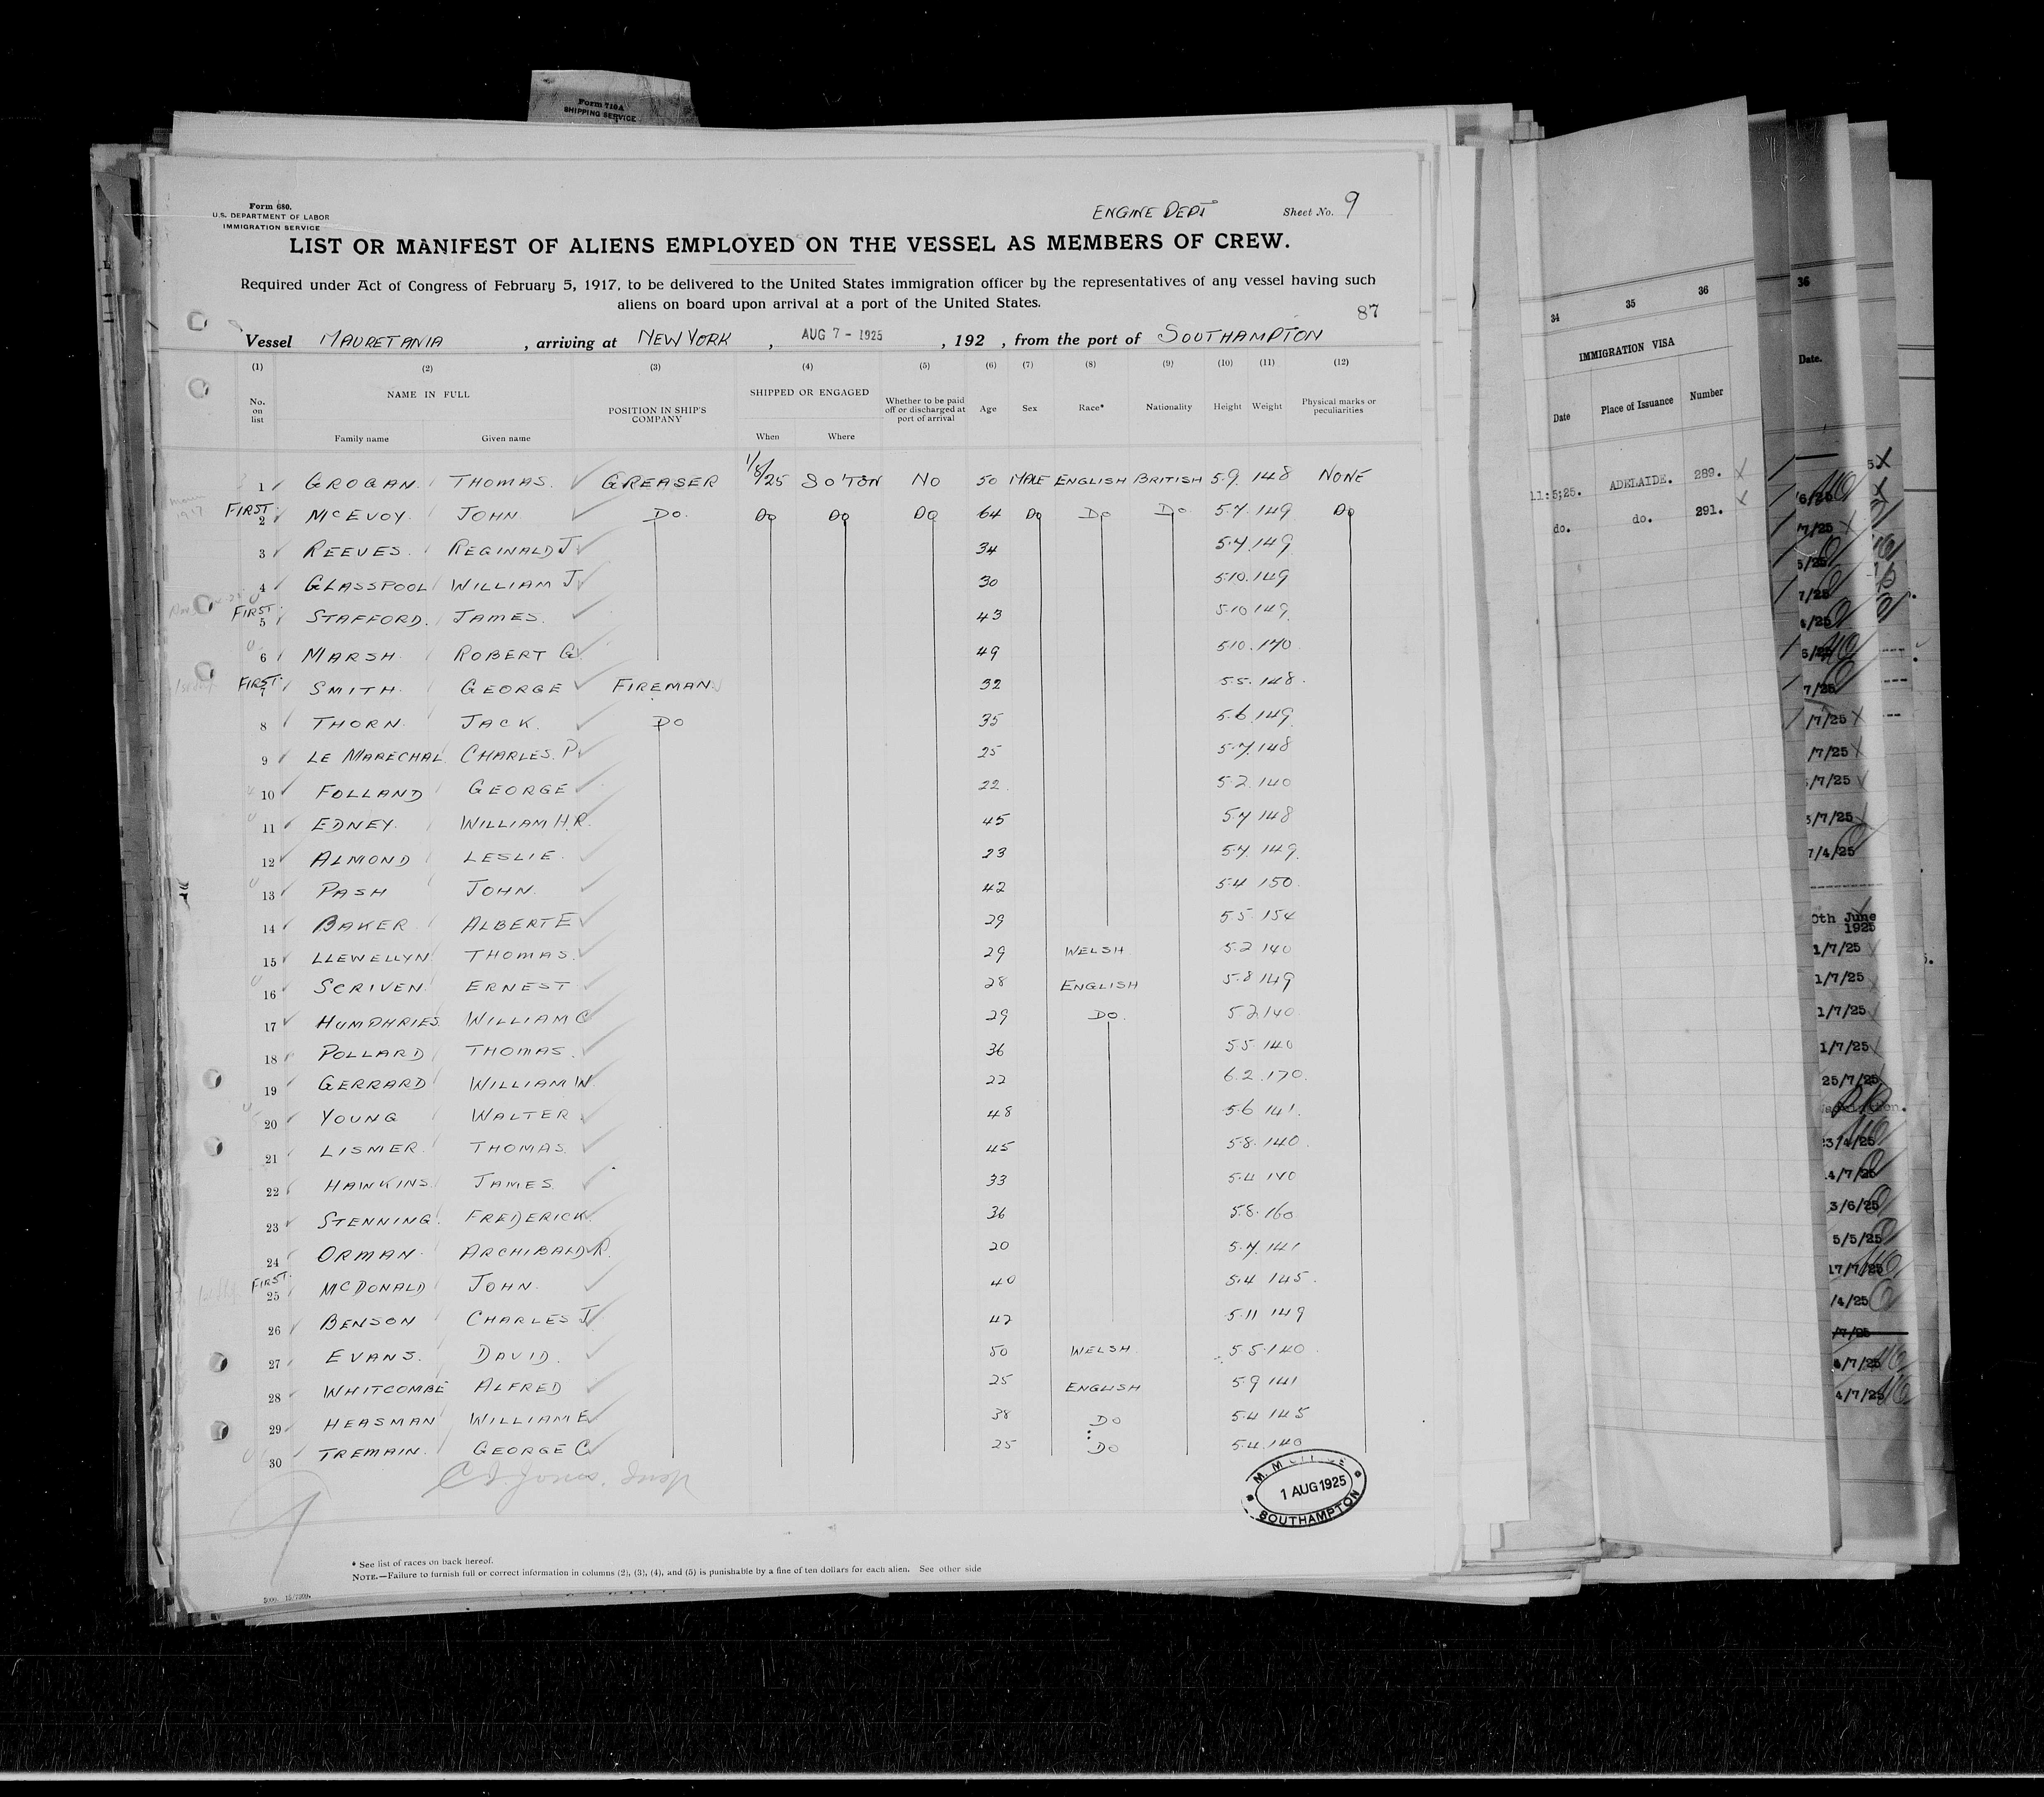 Form 710A
SHIPPING SERVICE
Form 680.
U.S. DEPARTMENT OF LABOR
IMMIGRATION SERVICE
ENGINE DEPT Sheet No. 9
LIST OR MANIFEST OF ALIENS EMPLOYED ON THE VESSEL AS MEMBERS OF CREW.
Required under Act of Congress of February 5, 1917, to be delivered to the United States immigration officer by the representatives of any vessel having such
aliens on board upon arrival at a port of the United States.
87
Vessel MAURETANIA , arriving at NEW YORK , AUG 7 - 1925 , 192 , from the port of SOUTHAMPTON
(1) (2) (3) (4) (5) (6) (7) (8) (9) (10) (11) (12)
No. on list NAME IN FULL Family name Given name POSITION IN SHIP'S COMPANY SHIPPED OR ENGAGED When Where Whether to be paid off or discharged at port of arrival Age Sex Race* Nationality Height Weight Physical marks or peculiarities
1 GROGAN. THOMAS. GREASER 1/8/25 SO'TON NO 50 MALE ENGLISH BRITISH 5.9. 148 NONE
FIRST 2 MCEVOY. JOHN. DO. DO DO DO 64 DO DO DO. 5.7. 149 DO
3 REEVES. REGINALD J 34 5.7. 149
4 GLASSPOOL WILLIAM J 30 5.10. 149
FIRST 5 STAFFORD. JAMES. 43 5.10 149
6 MARSH. ROBERT G. 49 5.10. 170
FIRST 7 SMITH. GEORGE FIREMAN 32 5.5. 148.
8 THORN. JACK. DO 35 5.6. 149
9 LE MARECHAL CHARLES. P. 25 5.7. 148
10 FOLLAND GEORGE 22. 5.2. 140
11 EDNEY. WILLIAM H.R. 45 5.7 148
12 ALMOND LESLIE. 23 5.7. 149.
13 PASH JOHN. 42 5.4 150.
14 BAKER ALBERT E 29 5.5. 154
15 LLEWELLYN THOMAS. 29 WELSH 5.2 140
16 SCRIVEN. ERNEST 28 ENGLISH 5.8 149
17 HUMPHRIES. WILLIAM C 29 DO. 5.2 140
18 POLLARD THOMAS. 36 5.5 140
19 GERRARD WILLIAM W. 22 6.2. 170.
20 YOUNG WALTER 48 5.6 141.
21 LISMER. THOMAS. 45 5.8. 140.
22 HAWKINS. JAMES. 33 5.4 140
23 STENNING. FREDERICK. 36 5.8. 160
24 ORMAN. ARCHIBALD R. 20 5.7. 141
FIRST. 25 MCDONALD JOHN. 40 5.4 145.
26 BENSON CHARLES J. 47 5.11 149
27 EVANS. DAVID. 50 WELSH. 5.5. 140.
28 WHITCOMBE ALFRED 25 ENGLISH 5.9 141
29 HEASMAN WILLIAM E 38 DO 5.4 145
30 TREMAIN. GEORGE C 25 DO 5.4. 140
1 AUG 1925
SOUTHAMPTON
* See list of races on back hereof.
NOTE.—Failure to furnish full or correct information in columns (2), (3), (4), and (5) is punishable by a fine of ten dollars for each alien. See other side
34 35 36
IMMIGRATION VISA
Date Place of Issuance Number
11:5;25. ADELAIDE. 289. X
do. do. 291. X
36
Date.
/7/25
/7/25
/7/25
5/7/25
7/4/25
0th June
1925
1/7/25
1/7/25
1/7/25
1/7/25
25/7/25
23/4/25
4/7/25
3/6/25
5/5/25
17/7/25
/4/25
/7/25
4/7/25